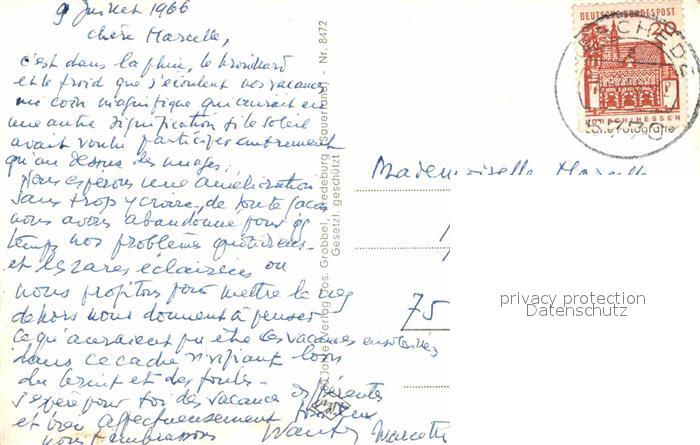 9 juillet 1966
Chère Marcelle,
c'est dans la pluie, le brouillard
et le froid que s'écoulent nos vacances
un coin magnifique qui aurait eu
une autre signification si le soleil
avait voulu participer autrement
qu'au dessus des nuages.
Nous espérons une amélioration
sans trop y croire, de toute façon
nous avons abandonné pour qq
temps nos problèmes quotidiens -
et les rares éclaircies où
nous profitons pour mettre le nez
dehors nous donnent à penser
ce qu'auraient pu être des vacances ensoleillées
dans ce cadre vivifiant loin
du bruit et des foules -
J'espère pour toi des vacances différentes
et bien affectueusement
nous t'embrassons
Marcotte
Verlag Jos. Grobbel, Fredeburg (Sauerland) - Nr. 8472
Gesetzl. geschützt
DEUTSCHE BUNDESPOST
20
LORSCH/HESSEN
Echte Fotografie
Mademoiselle Marcelle
75
privacy protection
Datenschutz